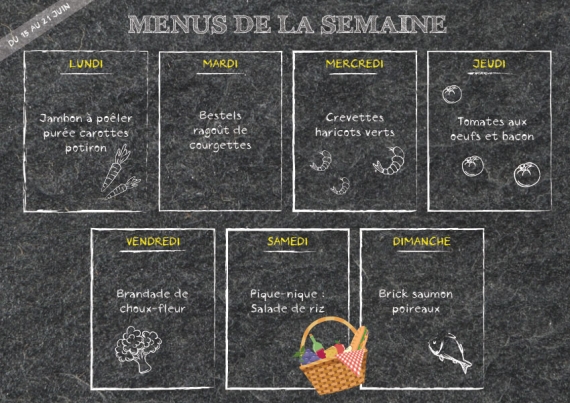 DU 15 AU 21 JUIN
MENUS DE LA SEMAINE
LUNDI
Jambon à poêler
purée carottes
potiron
MARDI
Bestels
ragoût de
courgettes
MERCREDI
Crevettes
haricots verts
JEUDI
Tomates aux
oeufs et bacon
VENDREDI
Brandade de
choux-fleur
SAMEDI
Pique-nique :
Salade de riz
DIMANCHE
Brick saumon
poireaux